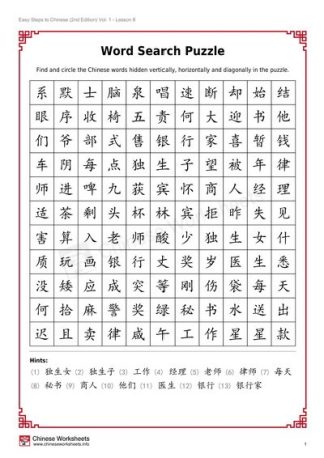 Easy Steps to Chinese (2nd Edition) Vol. 1 - Lesson 8
Word Search Puzzle
Find and circle the Chinese words hidden vertically, horizontally and diagonally in the puzzle.
系 默 士 脑 泉 唱 速 断 却 始 结
眼 序 收 椅 五 贵 何 大 迎 书 他
们 爷 部 式 售 银 行 家 喜 暂 钱
车 阴 每 点 独 生 子 望 被 年 律
师 进 啤 九 获 宾 怀 商 人 经 理
适 茶 剩 头 杯 林 宾 拒 昨 失 见
害 算 入 老 师 酸 少 独 生 女 什
质 玩 画 银 行 丈 奖 岁 医 生 悉
没 矮 应 成 突 等 刚 伤 袋 每 天
何 拾 麻 警 奖 绿 秘 书 水 送 出
迟 且 卖 律 咸 午 工 作 星 星 款
Hints:
(1) 独生女 (2) 独生子 (3) 工作 (4) 经理 (5) 老师 (6) 律师 (7) 每天
(8) 秘书 (9) 商人 (10) 他们 (11) 医生 (12) 银行 (13) 银行家
Chinese Worksheets
www.chineseworksheets.info
1